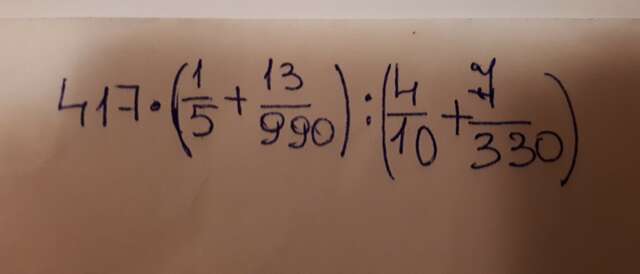 417·(1/5+13/990):(4/10+7/330)